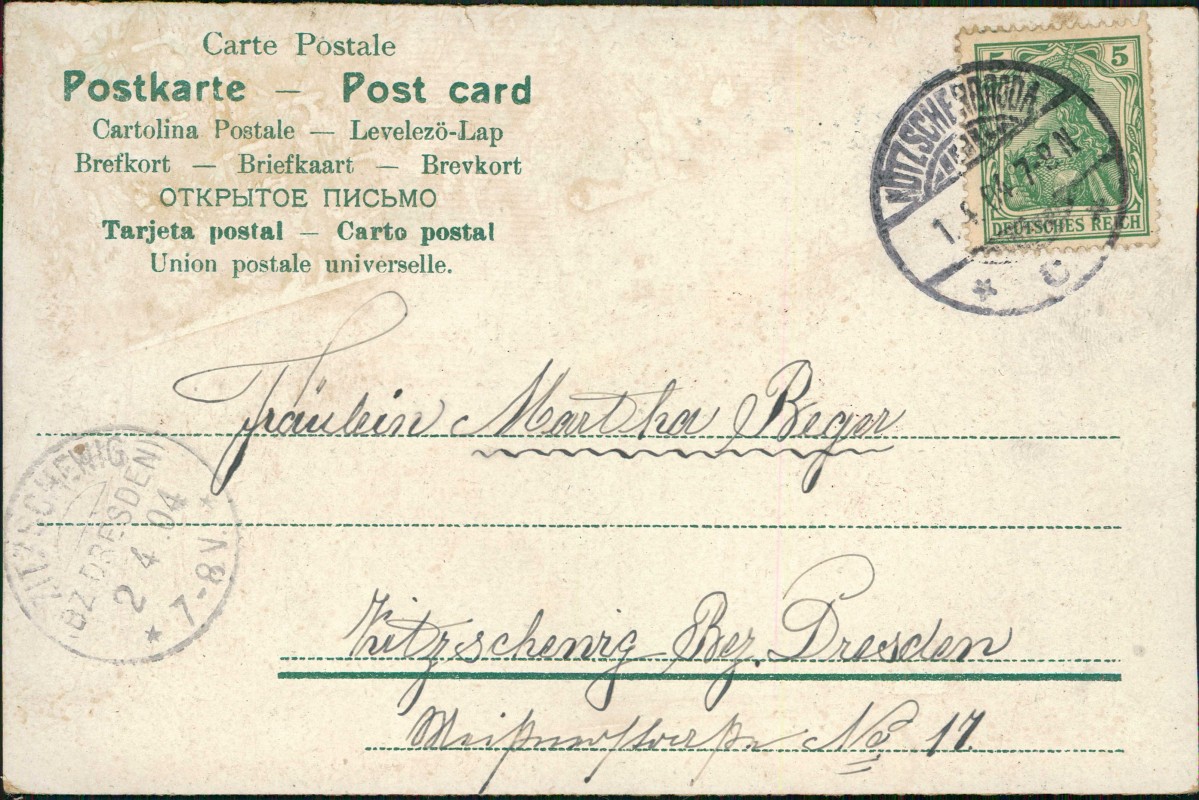 Carte Postale
Postkarte — Post card
Cartolina Postale — Levelezö-Lap
Brefkort — Briefkaart — Brevkort
ОТКРЫТОЕ ПИСЬМО
Tarjeta postal — Carto postal
Union postale universelle.
5 5
DEUTSCHES REICH
1. 4. 04. 7-8 N
* C
Fräulein Martha Beger
ZITZSCHEWIG
(BZ. DRESDEN)
2 4 04
* 7-8V. *
Zitzschewig Bez. Dresden
Meißnerstraße No 17.